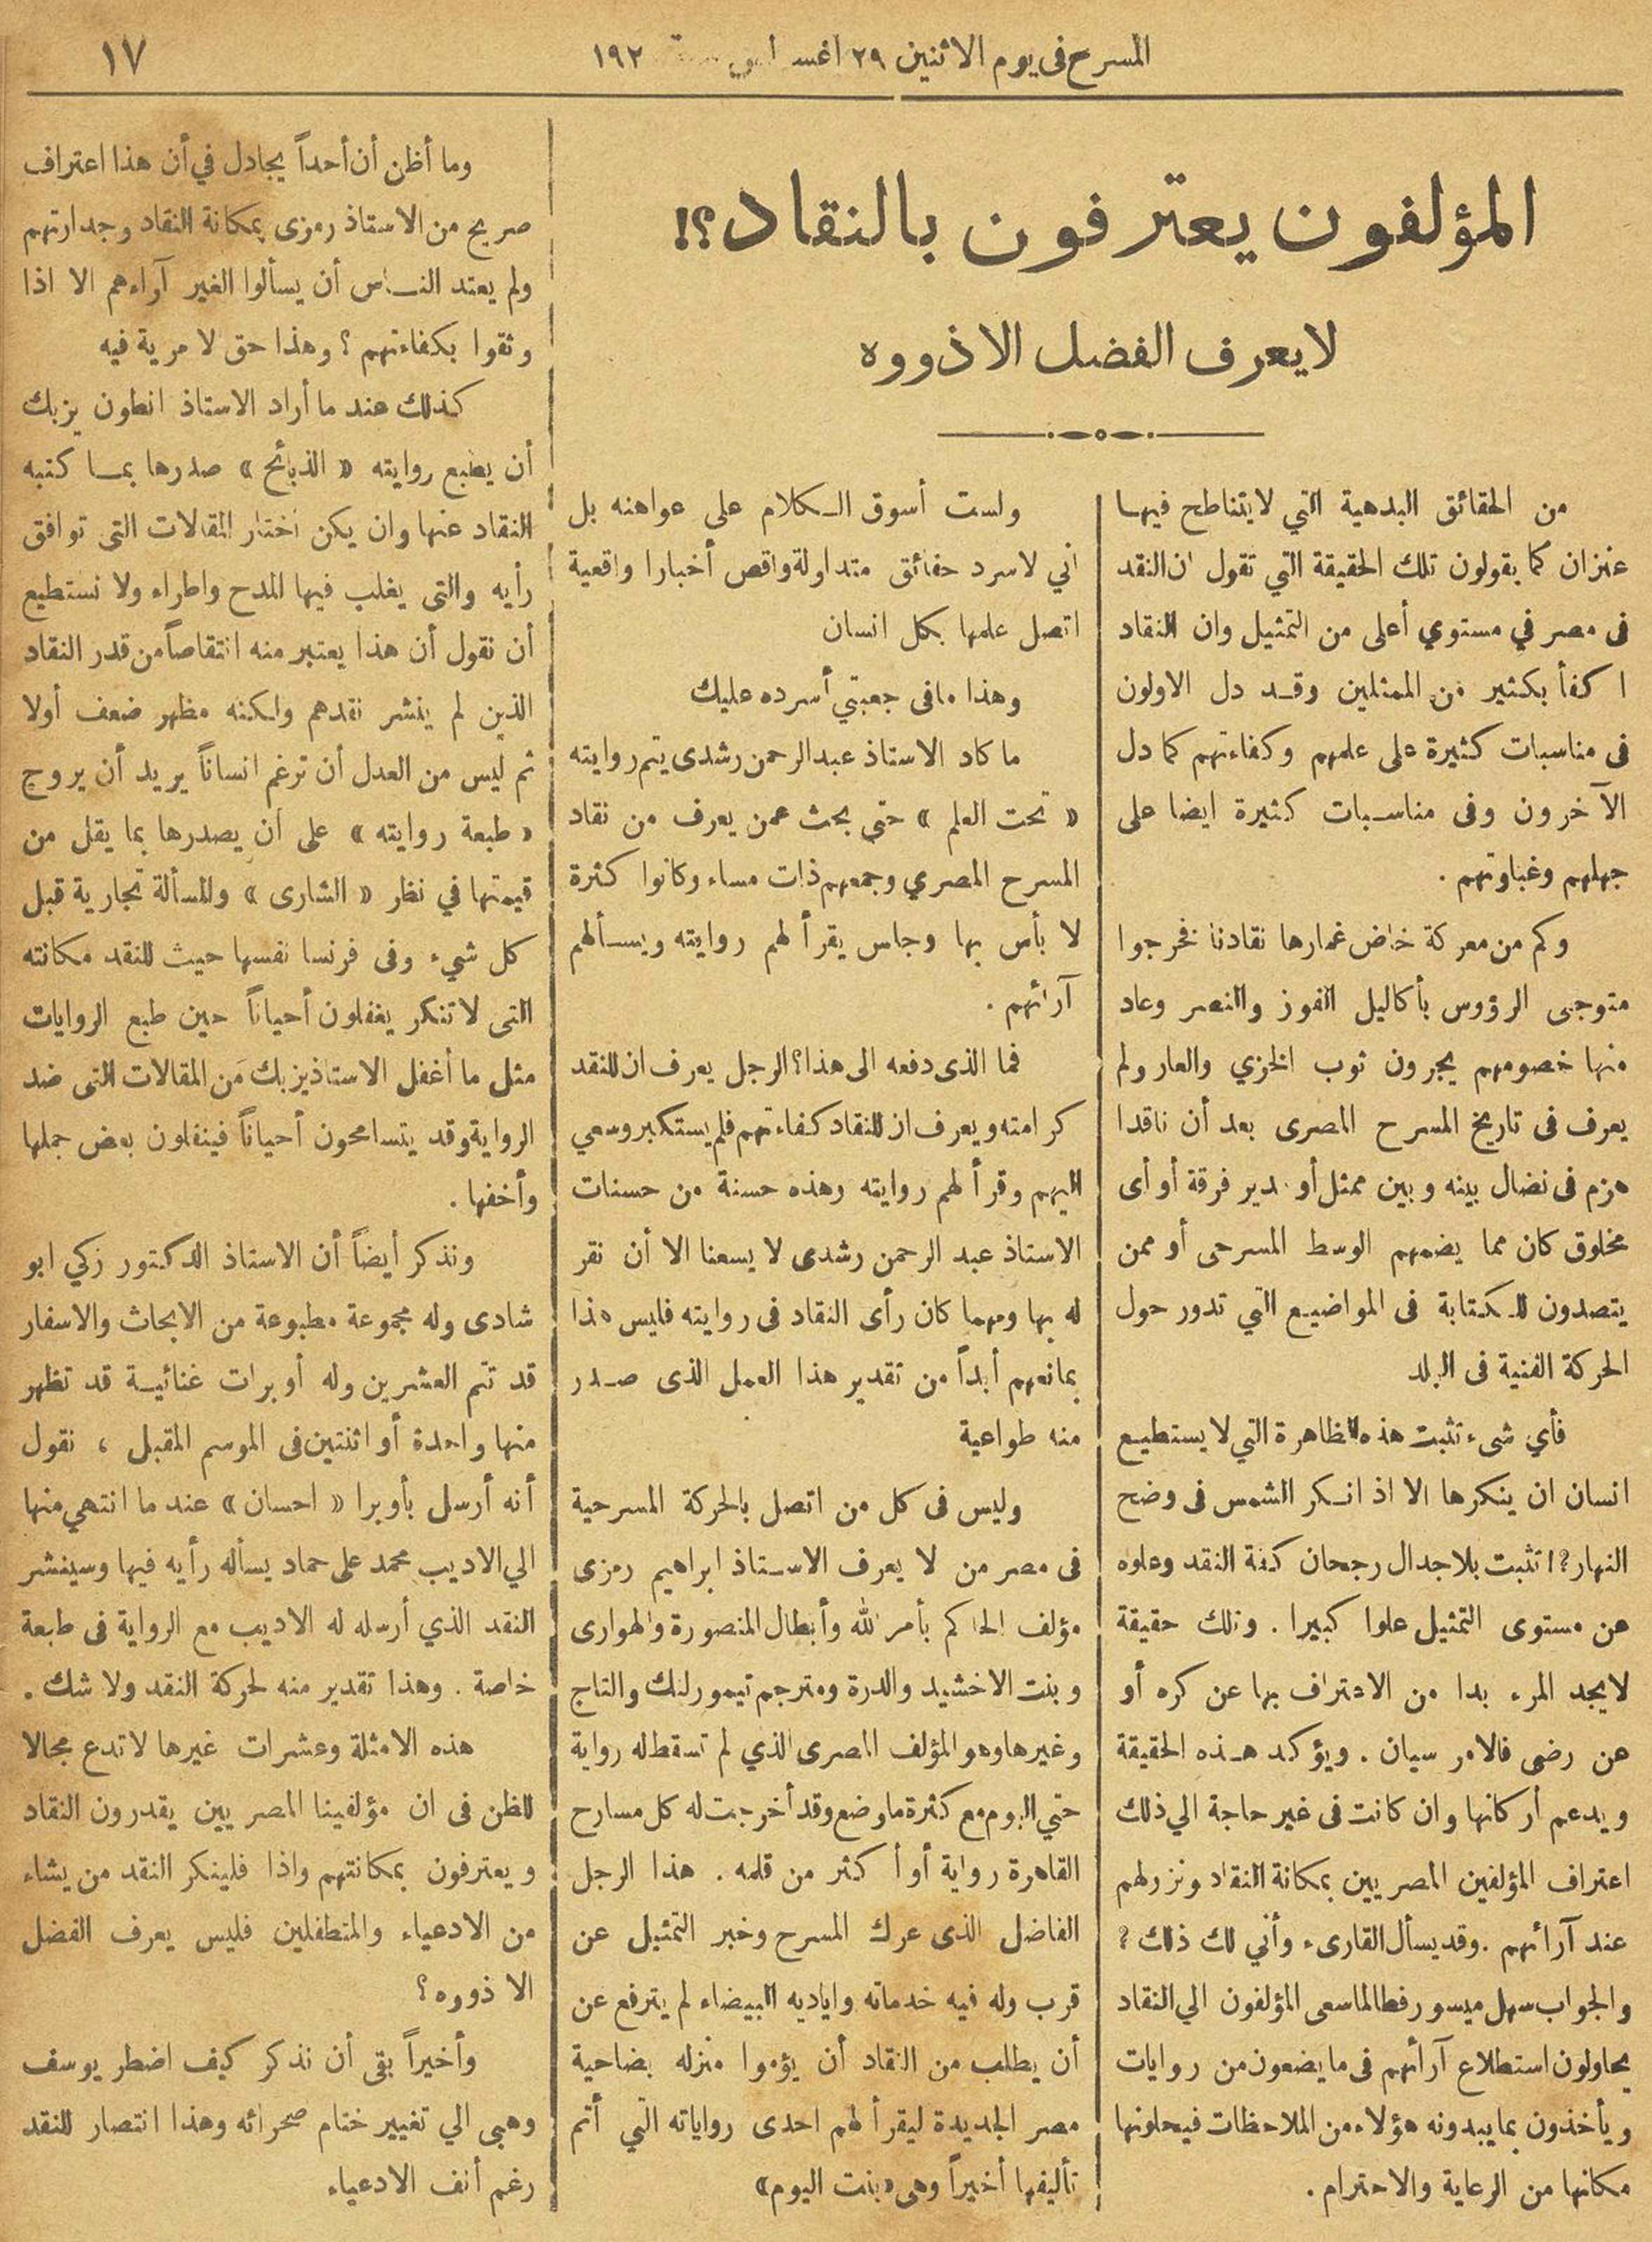 المسرح فى يوم الاثنين ٢٩ اغسطس سنة ١٩٢
١٧
المؤلفون يعترفون بالنقاد؟!
لا يعرف الفضل الا ذووه
من الحقائق البدهية التي لا يتناطح فيها
عنزان كما يقولون تلك الحقيقة التي تقول ان النقد
فى مصر في مستوي أعلى من التمثيل وان النقاد
اكفأ بكثير من الممثلين وقد دل الاولون
فى مناسبات كثيرة على علمهم وكفاءتهم كما دل
الآخرون وفى مناسبات كثيرة ايضا على
جهلهم وغباوتهم .
وكم من معركة خاض غمارها نقادنا فخرجوا
متوجى الرؤوس بأكاليل الفوز والنصر وعاد
منها خصومهم يجرون ثوب الخزي والعار ولم
يعرف فى تاريخ المسرح المصرى بعد أن ناقدا
هزم فى نضال بينه وبين ممثل أو مدير فرقة أو أى
مخلوق كان مما يضمهم الوسط المسرحى أو ممن
يتصدون للكتابة فى المواضيع التي تدور حول
الحركة الفنية فى البلد
فأي شىء تثبت هذه الظاهرة التي لا يستطيع
انسان ان ينكرها الا اذ انكر الشمس فى وضح
النهار؟ ا تثبت بلا جدال رجحان كفة النقد وعلوه
عن مستوى التمثيل علوا كبيرا . وتلك حقيقة
لا يجد المرء بدا من الاعتراف بها عن كره أو
عن رضى فالامر سيان . ويؤكد هذه الحقيقة
ويدعم أركانها وان كانت فى غير حاجة الي ذلك
اعتراف المؤلفين المصريين بمكانة النقاد ونزولهم
عند آرائهم . وقد يسأل القارىء وأني لك ذلك ؟
والجواب سهل ميسور فطالما سعى المؤلفون الي النقاد
يحاولون استطلاع آرائهم فى ما يضعون من روايات
ويأخذون بما يبدونه هؤلاء من الملاحظات فيحلونها
مكانها من الرعاية والاحترام .
ولست أسوق الكلام على عواهنه بل
اني لاسرد حقائق متداولة واقص أخبارا واقعية
اتصل علمها بكل انسان
وهذا ما فى جعبتي أسرده عليك
ما كاد الاستاذ عبد الرحمن رشدى يتم روايته
« تحت العلم » حتى بحث عمن يعرف من نقاد
المسرح المصري وجمعهم ذات مساء وكانوا كثرة
لا بأس بها وجلس يقرأ لهم روايته ويسألهم
آرائهم .
فما الذى دفعه الى هذا؟ الرجل يعرف ان للنقد
كرامته ويعرف ان للنقاد كفاءتهم فلم يستكبر وسعي
اليهم وقرأ لهم روايته وهذه حسنة من حسنات
الاستاذ عبد الرحمن رشدى لا يسعنا الا أن نقر
له بها ومهما كان رأى النقاد فى روايته فليس هذا
بمانعهم أبداً من تقدير هذا العمل الذى صدر
منه طواعية
وليس فى كل من اتصل بالحركة المسرحية
فى مصر من لا يعرف الاستاذ ابراهيم رمزى
مؤلف الحاكم بأمر الله وأبطال المنصورة والهوارى
وبنت الاخشيد والدرة ومترجم تيمورلنك والتاج
وغيرها وهو المؤلف المصرى الذي لم تسقط له رواية
حتي اليوم مع كثرة ما وضع وقد أخرجت له كل مسارح
القاهرة رواية أو أكثر من قلمه . هذا الرجل
الفاضل الذى عرك المسرح وخبر التمثيل عن
قرب وله فيه خدماته واياديه البيضاء لم يترفع عن
أن يطلب من النقاد أن يؤموا منزله بضاحية
مصر الجديدة ليقرأ لهم احدى رواياته التي أتم
تأليفها أخيراً وهى «بنت اليوم»
وما أظن أن أحداً يجادل في أن هذا اعتراف
صريح من الاستاذ رمزى بمكانة النقاد وجدارتهم
ولم يعتد الناس أن يسألوا الغير آراءهم الا اذا
وثقوا بكفاءتهم ؟ وهذا حق لا مرية فيه
كذلك عند ما أراد الاستاذ انطون يزبك
أن يطبع روايته « الذبائح » صدرها بما كتبه
النقاد عنها وان يكن اختار المقالات التى توافق
رأيه والتى يغلب فيها المدح واطراء ولا نستطيع
أن نقول أن هذا يعتبر منه انتقاصاً من قدر النقاد
الذين لم ينشر نقدهم ولكنه مظهر ضعف أولا
ثم ليس من العدل أن ترغم انساناً يريد أن يروج
« طبعة روايته » على أن يصدرها بما يقلل من
قيمتها في نظر « الشارى » والمسألة تجارية قبل
كل شيء وفى فرنسا نفسها حيث للنقد مكانته
التى لا تنكر يغفلون أحياناً حين طبع الروايات
مثل ما أغفل الاستاذ يزبك من المقالات التى ضد
الرواية وقد يتسامحون أحياناً فينقلون بعض جملها
وأخفها .
ونذكر أيضاً أن الاستاذ الدكتور زكي ابو
شادى وله مجموعة مطبوعة من الابحاث والاسفار
قد تتم العشرين وله أوبرات غنائية قد تظهر
منها واحدة أو اثنتين فى الموسم المقبل ، نقول
أنه أرسل بأوبرا « احسان » عند ما انتهي منها
الي الاديب محمد على حماد يسأله رأيه فيها وسينشر
النقد الذي أرسله له الاديب مع الرواية فى طبعة
خاصة . وهذا تقدير منه لحركة النقد ولا شك .
هذه الامثلة وعشرات غيرها لا تدع مجالا
للظن فى ان مؤلفينا المصريين يقدرون النقاد
ويعترفون بمكانتهم واذا فلينكر النقد من يشاء
من الادعياء والمتطفلين فليس يعرف الفضل
الا ذووه ؟
وأخيراً بقى أن نذكر كيف اضطر يوسف
وهبى الي تغيير ختام صحرائه وهذا انتصار للنقد
رغم أنف الادعياء